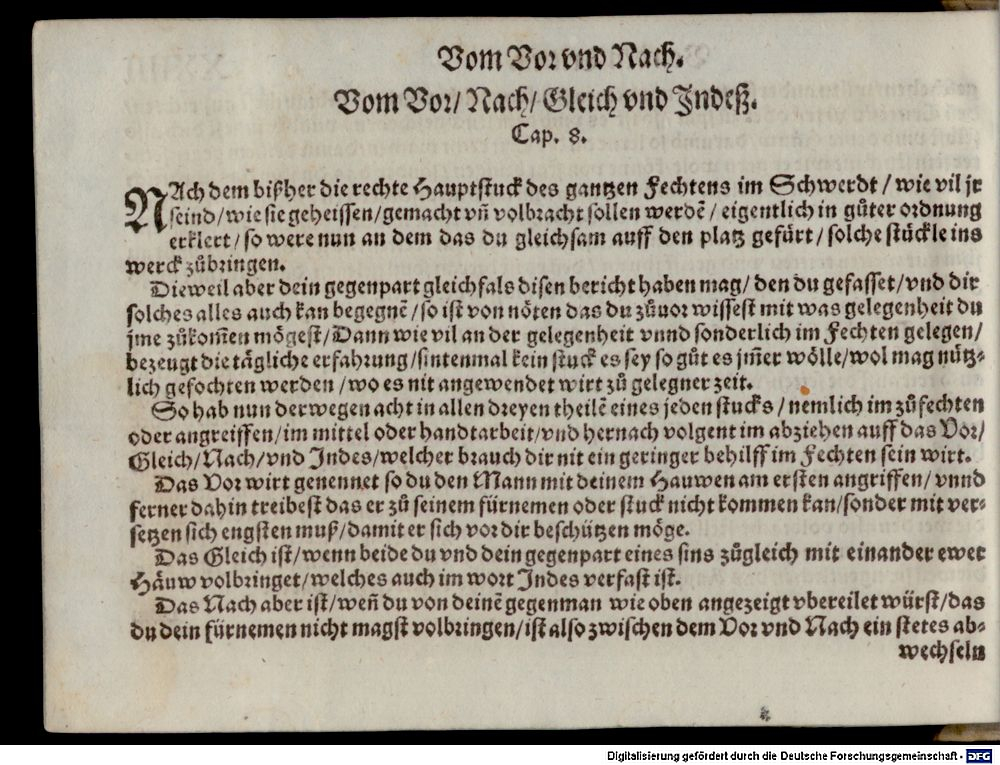 Vom Vor vnd Nach.
Vom Vor/ Nach/ Gleich vnd Jndeß.
Cap. 8.
NAch dem bißher die rechte Hauptstuck des gantzen Fechtens im Schwerdt / wie vil jr
seind/ wie sie geheissen/ gemacht vñ volbracht sollen werdẽ / eigentlich in gůter ordnung
erklert/ so were nun an dem das du gleichsam auff den platz gefürt/ solche stückle ins
werck zůbringen.
Dieweil aber dein gegenpart gleichfals disen bericht haben mag/ den du gefasset/ vnd dir
solches alles auch kan begegnẽ/ so ist von nöten das du zůuor wissest mit was gelegenheit du
jme zůkom̃en mögest/ Dann wie vil an der gelegenheit vnnd sonderlich im Fechten gelegen/
bezeugt die tägliche erfahrung/ sintenmal kein stuck es sey so gůt es jm̃er wölle/ wol mag nütz⸗
lich gefochten werden / wo es nit angewendet wirt zů gelegner zeit.
So hab nun derwegen acht in allen dreyen theilẽ eines jeden stucks / nemlich im zůfechten
oder angreiffen/ im mittel oder handtarbeit/ vnd hernach volgent im abziehen auff das Vor/
Gleich/ Nach/ vnd Jndes/ welcher brauch dir nit ein geringer behilff im Fechten sein wirt.
Das Vor wirt genennet so du den Mann mit deinem Hauwen am ersten angriffen/ vnnd
ferner dahin treibest das er zů seinem fürnemen oder stuck nicht kommen kan/ sonder mit ver⸗
setzen sich engsten muß/ damit er sich vor dir beschützen möge.
Das Gleich ist/ wenn beide du vnd dein gegenpart eines sins zůgleich mit einander ewer
Häuw volbringet/ welches auch im wort Jndes verfast ist.
Das Nach aber ist/ weñ du von deinẽ gegenman wie oben angezeigt vbereilet würst/ das
du dein fürnemen nicht magst volbringen/ ist also zwischen dem Vor vnd Nach ein stetes ab⸗
wechseln
Digitalisierung gefördert durch die Deutsche Forschungsgemeinschaft - DFG